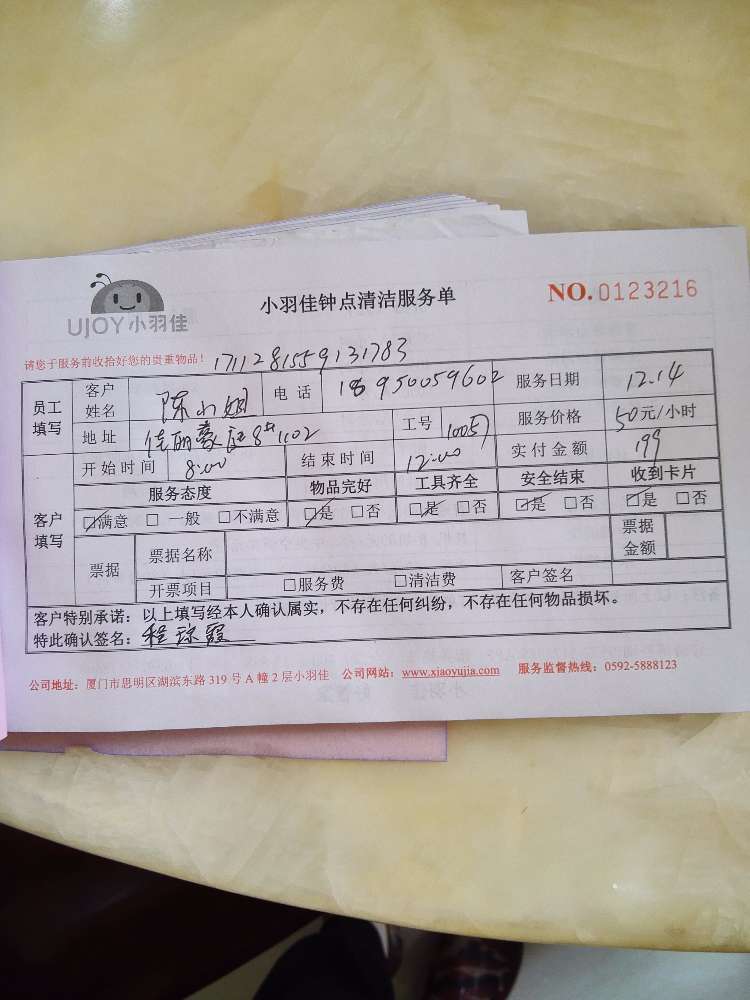 UJOY小羽佳
小羽佳钟点清洁服务单
NO.0123216
请您于服务前收拾好您的贵重物品！ 1711281559131783
员工填写 客户姓名 陈小姐 电话 18950059602 服务日期 12.14
地址 佳丽豪庭8#1102 工号 服务价格 50元/小时
客户填写 开始时间 8:00 结束时间 12:00 实付金额 199
服务态度 物品完好 工具齐全 安全结束 收到卡片
☑满意 □一般 □不满意 ☑是 □否 ☑是 □否 ☑是 □否 ☑是 □否
票据 票据名称 票据金额
开票项目 □服务费 □清洁费 客户签名
客户特别承诺：以上填写经本人确认属实，不存在任何纠纷，不存在任何物品损坏。
特此确认签名：程琼霞
公司地址：厦门市思明区湖滨东路319号A幢2层小羽佳 公司网站：www.xiaoyujia.com 服务监督热线：0592-5888123